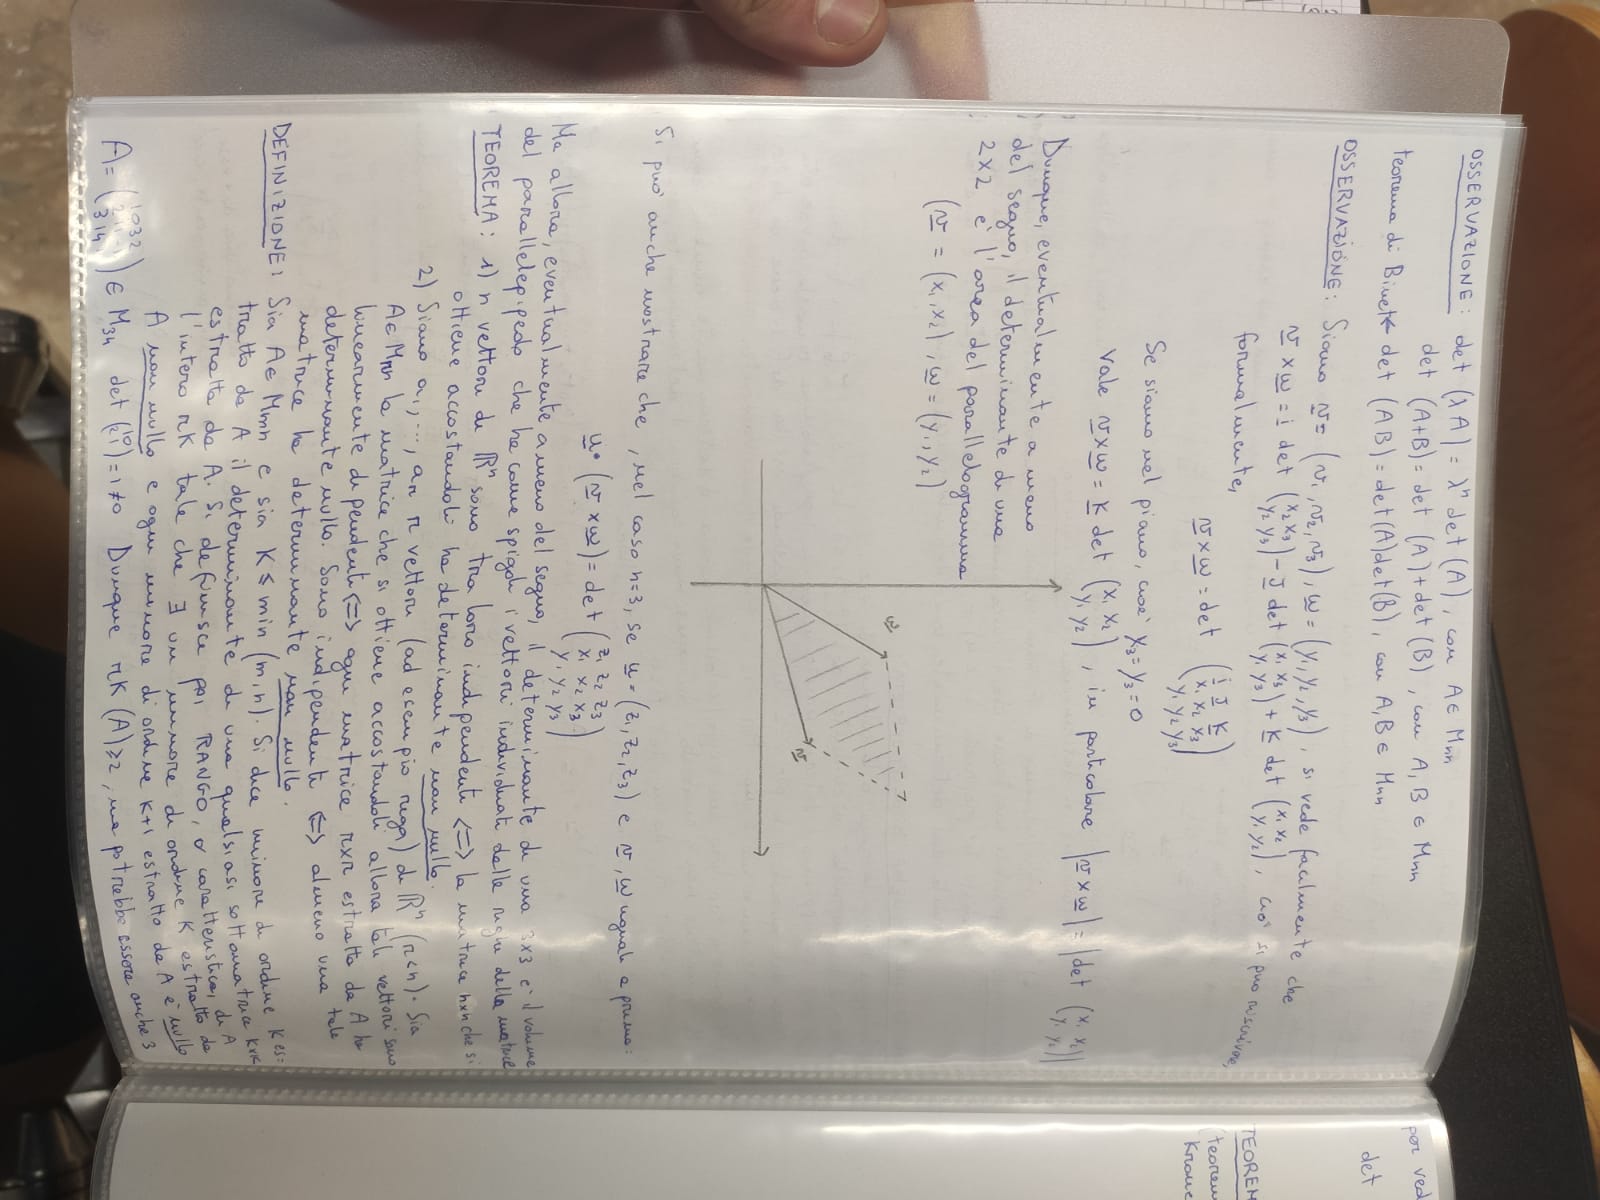 OSSERVAZIONE: det (λA) = λⁿ det (A), con A ∈ Mnn
det (A+B) = det (A) + det (B), con A, B ∈ Mnn
teorema di Binet← det (AB) = det(A)det(B), con A,B ∈ Mnn
OSSERVAZIONE: Siano v = (v₁,v₂,v₃), w = (y₁,y₂,y₃), si vede facilmente che
v × w = i det (x₂ x₃ / y₂ y₃) - J det (x₁ x₃ / y₁ y₃) + K det (x₁ x₂ / y₁ y₂), ciò si può riscrivere,
formalmente,
v × w = det (i J K / x₁ x₂ x₃ / y₁ y₂ y₃)
Se siamo nel piano, cioè x₃ = y₃ = 0
vale v × w = K det (x₁ x₂ / y₁ y₂), in particolare |v × w| = |det (x₁ x₂ / y₁ y₂)|
Dunque, eventualmente a meno
del segno, il determinante di una
2×2 è l'area del parallelogramma
(v = (x₁,x₂), w = (y₁,y₂)
w
v
Si può anche mostrare che, nel caso n=3, se u = (z₁,z₂,z₃) e v, w uguali a prima:
u • (v × w) = det (z₁ z₂ z₃ / x₁ x₂ x₃ / y₁ y₂ y₃)
Ma allora, eventualmente a meno del segno, il determinante di una 3×3 è il volume
del parallelepipedo che ha come spigoli i vettori individuati dalle righe della matrice
TEOREMA: 1) n vettori di ℝⁿ sono tra loro indipendenti <=> la matrice n×n che si
ottiene accostandoli ha determinante non nullo.
2) Siano a₁, ..., ar r vettori (ad esempio riga) di ℝⁿ (r<n). Sia
A ∈ Mrn la matrice che si ottiene accostandoli allora tali vettori sono
linearmente dipendenti <=> ogni matrice r×r estratta da A ha
determinante nullo. Sono indipendenti <=> almeno una tale
matrice ha determinante non nullo.
DEFINIZIONE: Sia A ∈ Mmn e sia K ≤ min (m,n). Si dice minore di ordine K es=
tratto da A il determinante di una qualsiasi sottomatrice K×K
estratta da A. Si definisce poi RANGO, o caratteristica, di A
l'intero rK tale che ∃ un minore di ordine K estratto da
A non nullo e ogni minore di ordine K+1 estratto da A è nullo
A = (1 0 3 2 / 2 1 1 -1 / 3 1 4 ) ∈ M₃₄ det (1 0 / 2 1) = 1 ≠ 0 Dunque rK (A) ≥ 2, ma potrebbe essere anche 3
per ved
det
TEOREM
(teorem
Krone